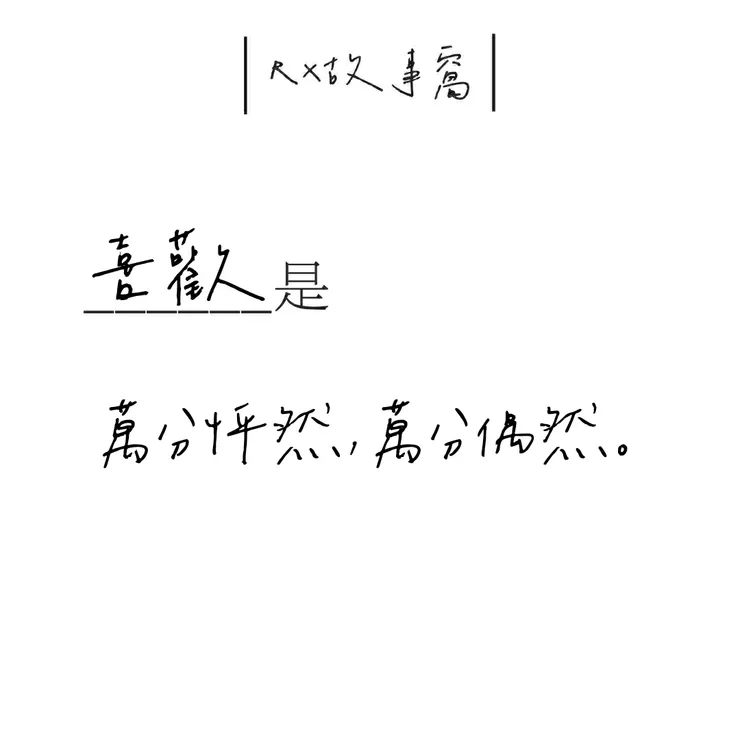 |R×故事窩|
喜歡是
萬分怦然,萬分偶然。